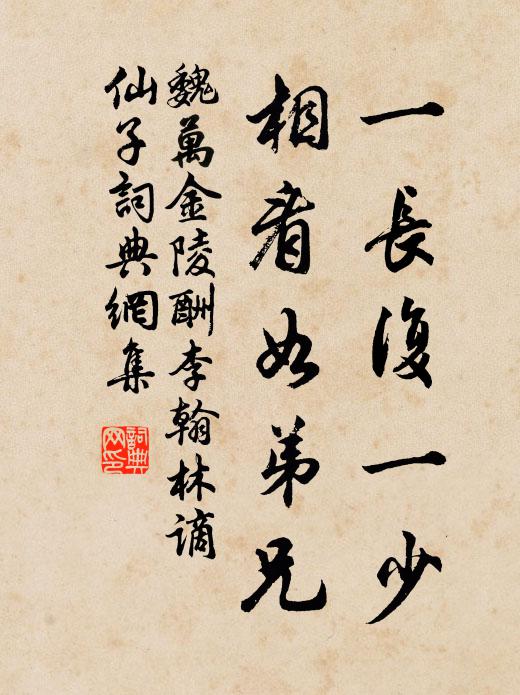 一長復一少
相看如弟兄
魏萬金陵酬李翰林謫
仙子詞典網集
詞典
网印